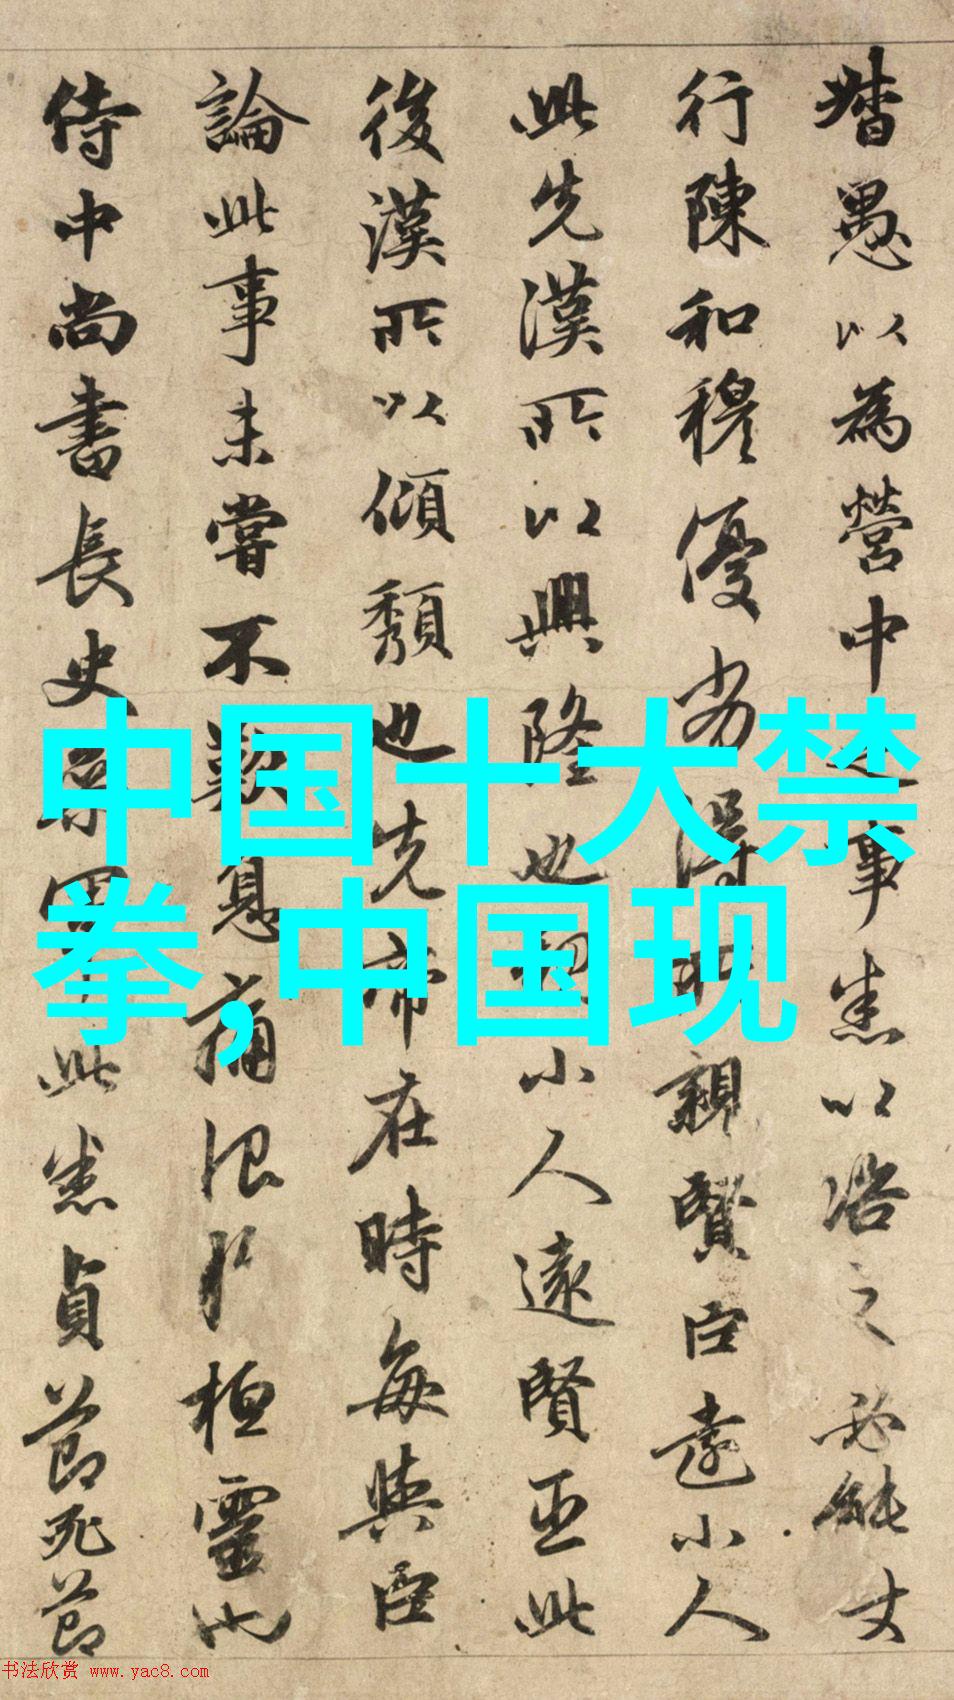 督愚以為營中之事悉以咨之必能丈
行陳和穆優劣得所親賢臣遠小人
此先漢所以興隆也親小人遠賢臣此
後漢所以傾頹也先帝在時每與臣
論此事未嘗不歎息痛恨於桓靈也
侍中尚書長史參軍此悉貞節死節
中国十大禁
拳,中国现
书法欣赏 www.yac8.com